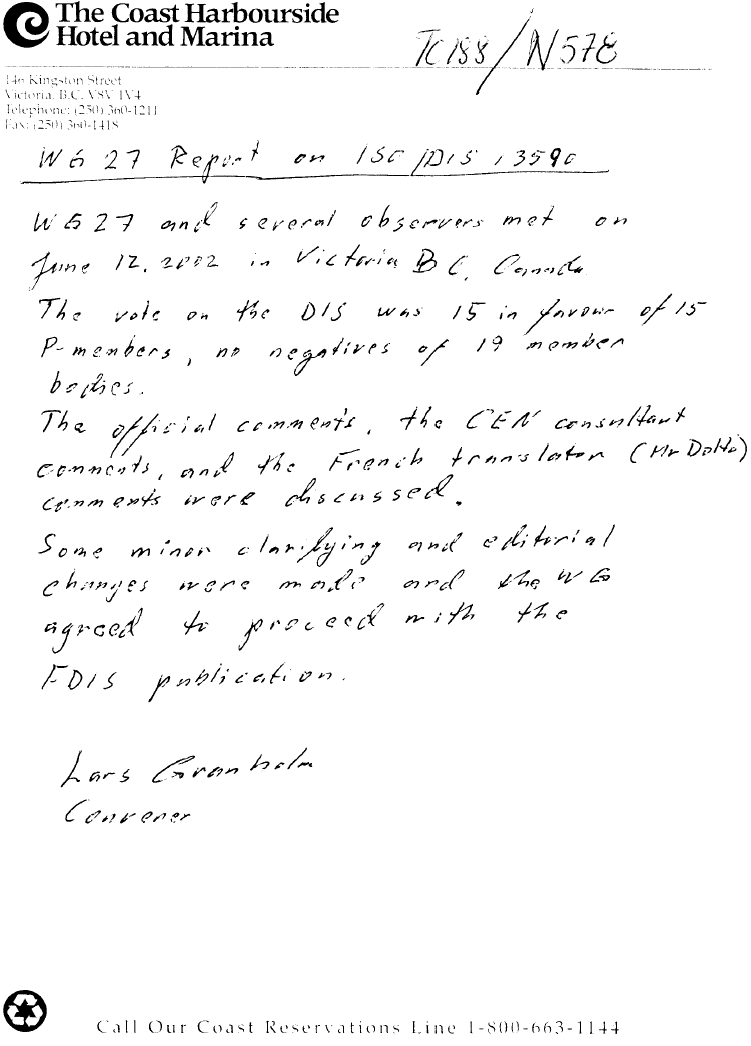 The Coast Harbourside
Hotel and Marina
TC188/N578
146 Kingston Street
Victoria, B.C. V8V 1V4
Telephone: (250) 360-1211
Fax: (250) 360-1418
WG 27 Report on ISO/DIS 13590
WG27 and several observers met on
June 12, 2002 in Victoria BC, Canada
The vote on the DIS was 15 in favour of 15
P-members, no negatives of 19 member
bodies.
The official comments, the CEN consultant
comments, and the French translator (Mr
comments were discussed.
Some minor clarifying and editorial
changes were made and the WG
agreed to proceed with the
FDIS publication.
Lars Granholm
Convener
Call Our Coast Reservations Line 1-800-663-1144